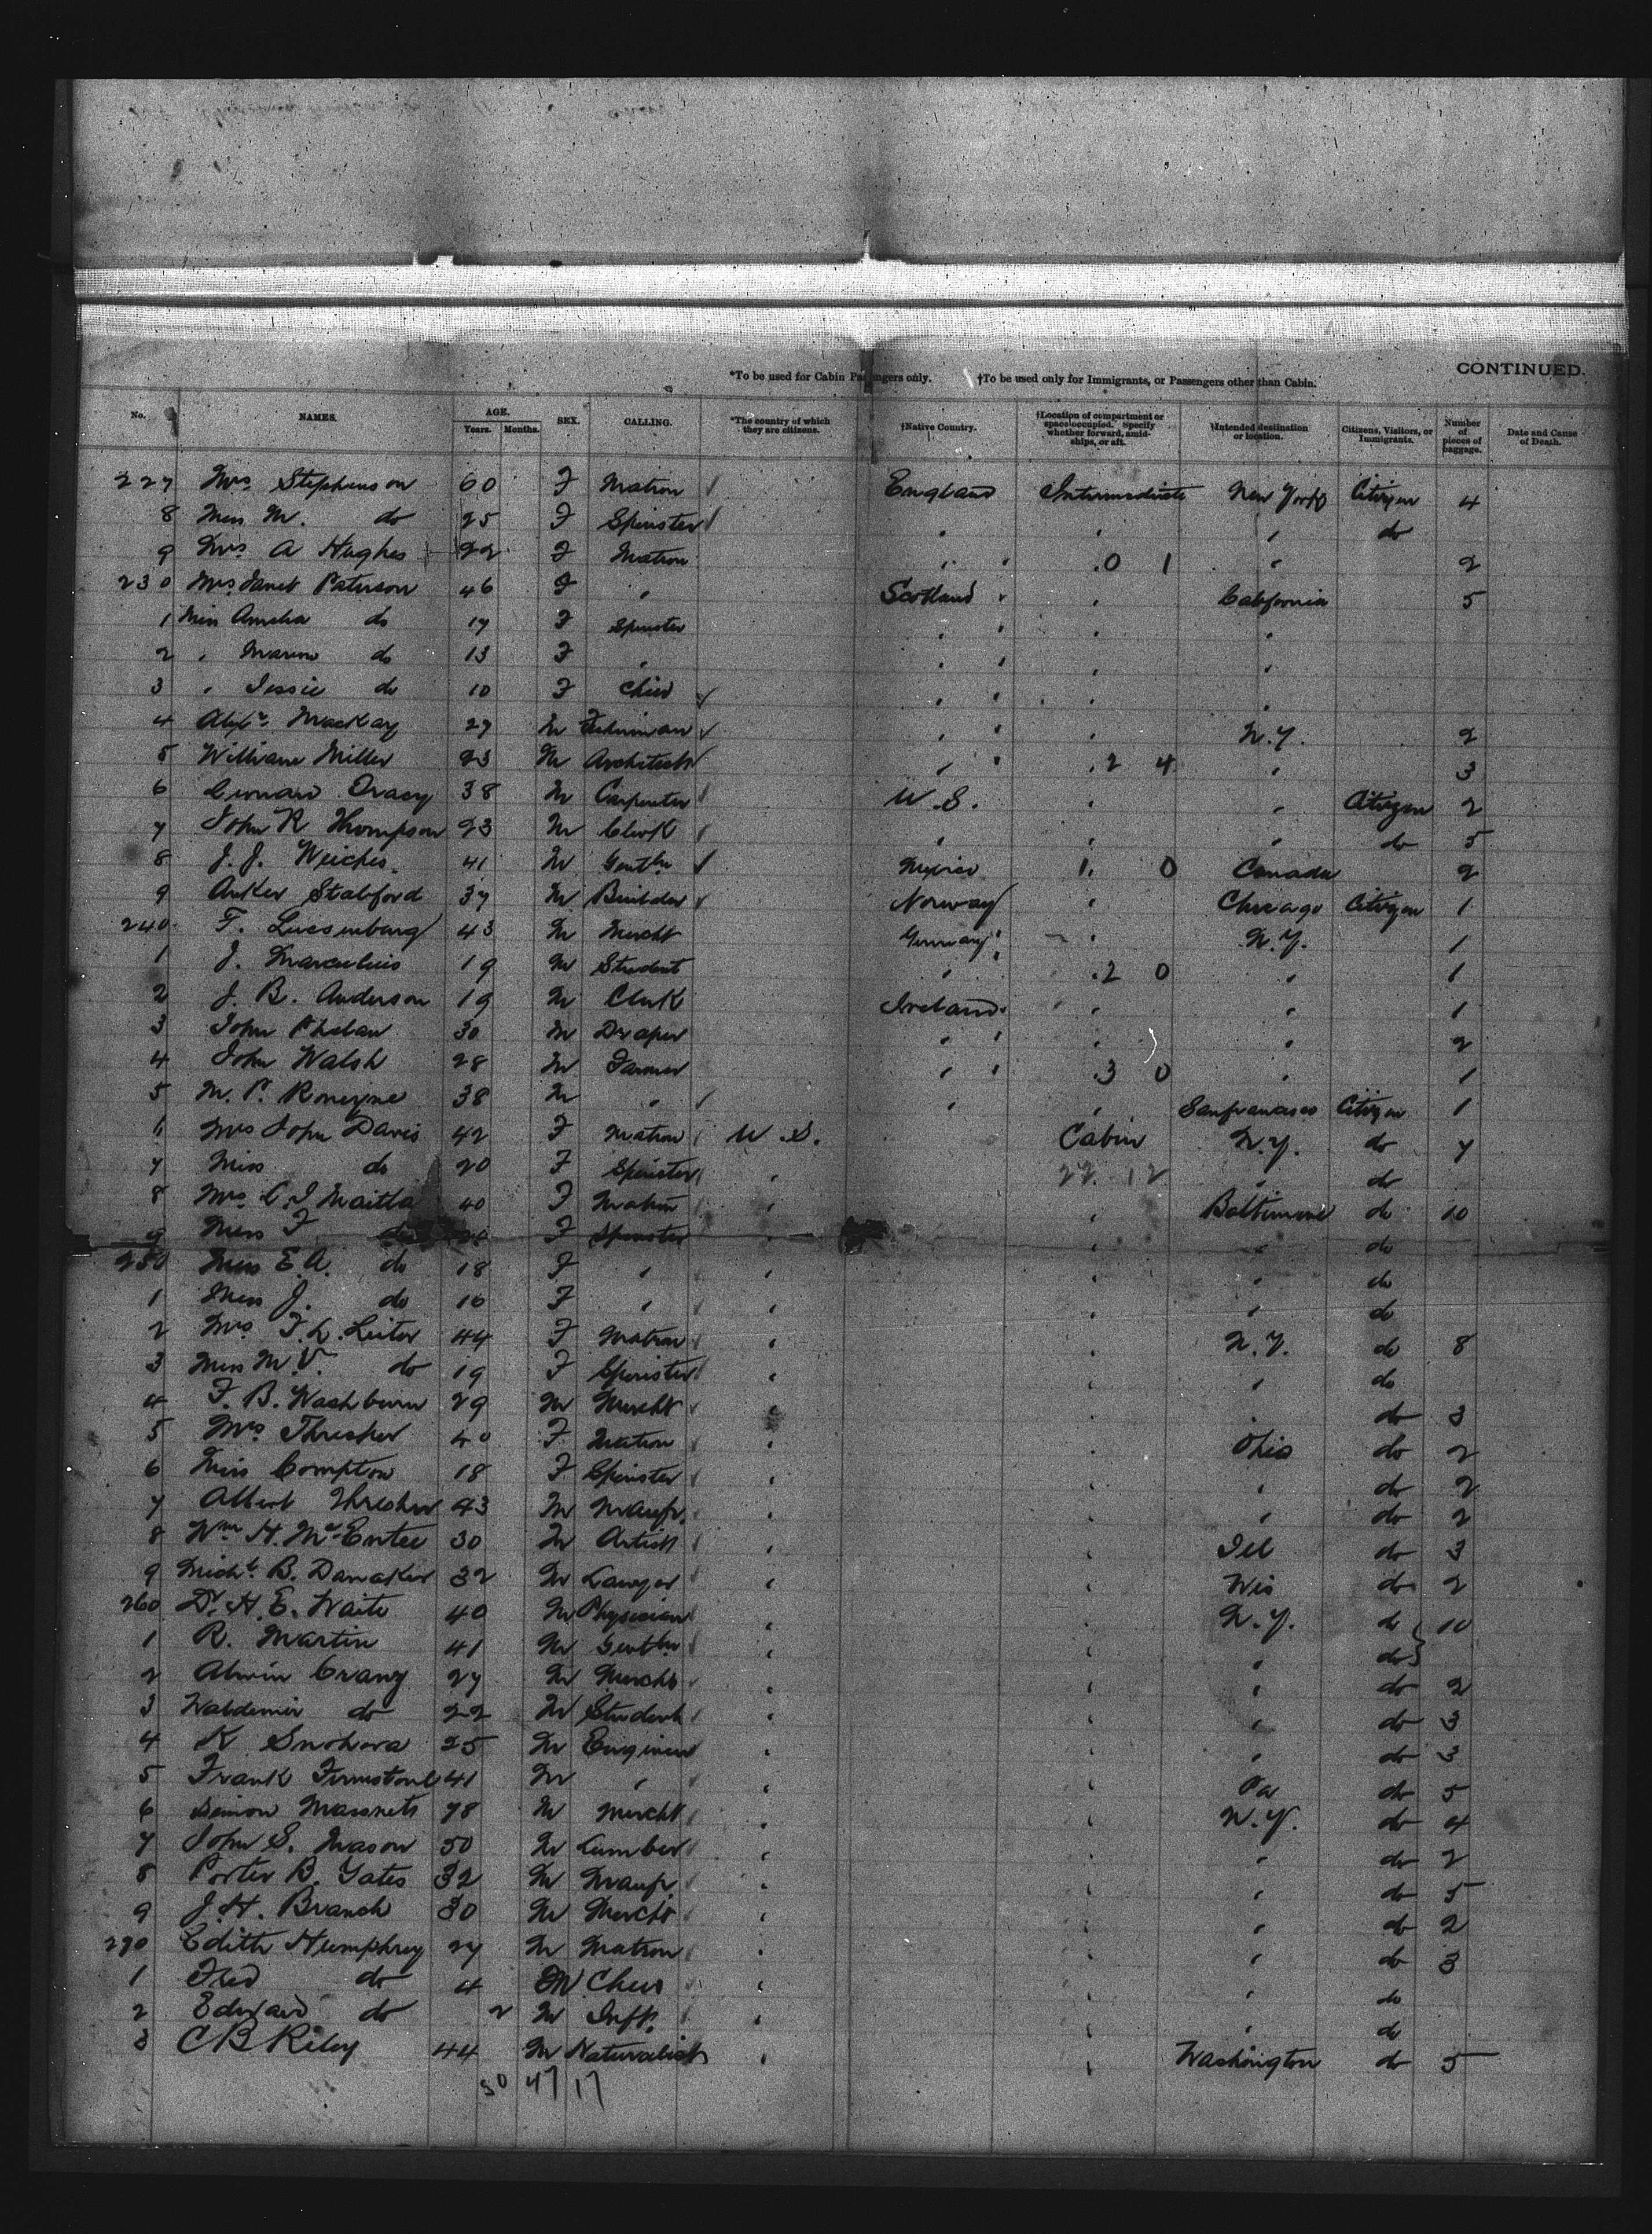 CONTINUED.
*To be used for Cabin Passengers only. †To be used only for Immigrants, or Passengers other than Cabin.
No. NAMES. AGE. Years. Months. SEX. CALLING. *The country of which they are citizens. †Native Country. †Location of compartment or space occupied. Specify whether forward, amidships, or aft. †Intended destination or location. Citizens, Visitors, or Immigrants. Number of pieces of baggage. Date and Cause of Death.
227 Mrs Stephenson 60 F Matron England Intermediate New York Citizen 4
8 Miss M. do 25 F Spinster " " " do
9 Mrs A Hughes 22 F Matron " " .0 1 " 2
230 Mrs Janet Paterson 46 F " Scotland " " California 5
1 Miss Amelia do 17 F Spinster " " " "
2 " Marion do 13 F " " " " "
3 " Jessie do 10 F Child " " " "
4 Alexr. MacKay 27 M " " " N.Y. 2
5 William Miller 23 M Architect " " .2 4 " 3
6 38 M Carpenter U.S. " " Citizen 2
7 John R Thompson 23 M Clerk " " " do 5
8 J. J. 41 M Gentln Mexico 1. 0 Canada 2
9 Anker Stabford 37 M Builder Norway " Chicago Citizen 1
240 F. Luxemburg 43 M Mercht Germany " " N.Y. 1
1 J. 19 M Student " " .2 0 " 1
2 J. B. Anderson 19 M Clerk Ireland " " 1
3 John Phelan 30 M Draper " " " " 2
4 John Walsh 28 M Farmer " " .3 0 " 1
5 M. P. Ronayne 38 M " " " Sanfrancisco Citizen 1
6 Mrs John Davis 42 F Matron U.S. Cabin N.Y. do 7
7 Miss do 20 F Spinster " 22. 12 " do
8 Mrs C. J Maitla 40 F Matron " " Baltimore do 10
9 Miss F do F Spinster " " " do
250 Miss E.A. do 18 F " " " " do
1 Miss J. do 16 F " " " " do
2 Mrs F. L. Leiter 44 F Matron " " N.Y. do 8
3 Miss M V. do 19 F Spinster " " " do
4 F. B. Washburn 29 M Mercht " " " do 3
5 Mrs Thresher 40 F Matron " " Ohio do 2
6 Miss Compton 18 F Spinster " " " do 2
7 Albert Thresher 43 M Manfr. " " " do 2
8 Wm H. McEntee 30 M Artist " " Ill do 3
9 Michl. B. 32 M Lawyer " " Wis do 2
260 Dr. H. E. Waite 40 M Physician " " N.Y. do 10
1 R. Martin 41 M Gentln " " " do
2 Alwin Cranz 27 M Mercht " " " do 2
3 Waldemir do 22 M Student " " " do 3
4 K 25 M Engineer " " " do 3
5 Frank Firmstone 41 M " " " Pa do 5
6 Simon 78 M Mercht " " N.Y. do 4
7 John S. Mason 50 M Lumber " " " do 2
8 Porter B. Yates 32 M Manfr. " " " do 5
9 J. H. Branch 30 M Mercht " " " do 2
270 Edith Humphrey 27 M Matron " " " do 3
1 Fred do 4 M Child " " " do
2 Edward do 2 M Inft. " " " do
3 C B Riley 44 M Naturalist " " Washington do 5
30 47 17